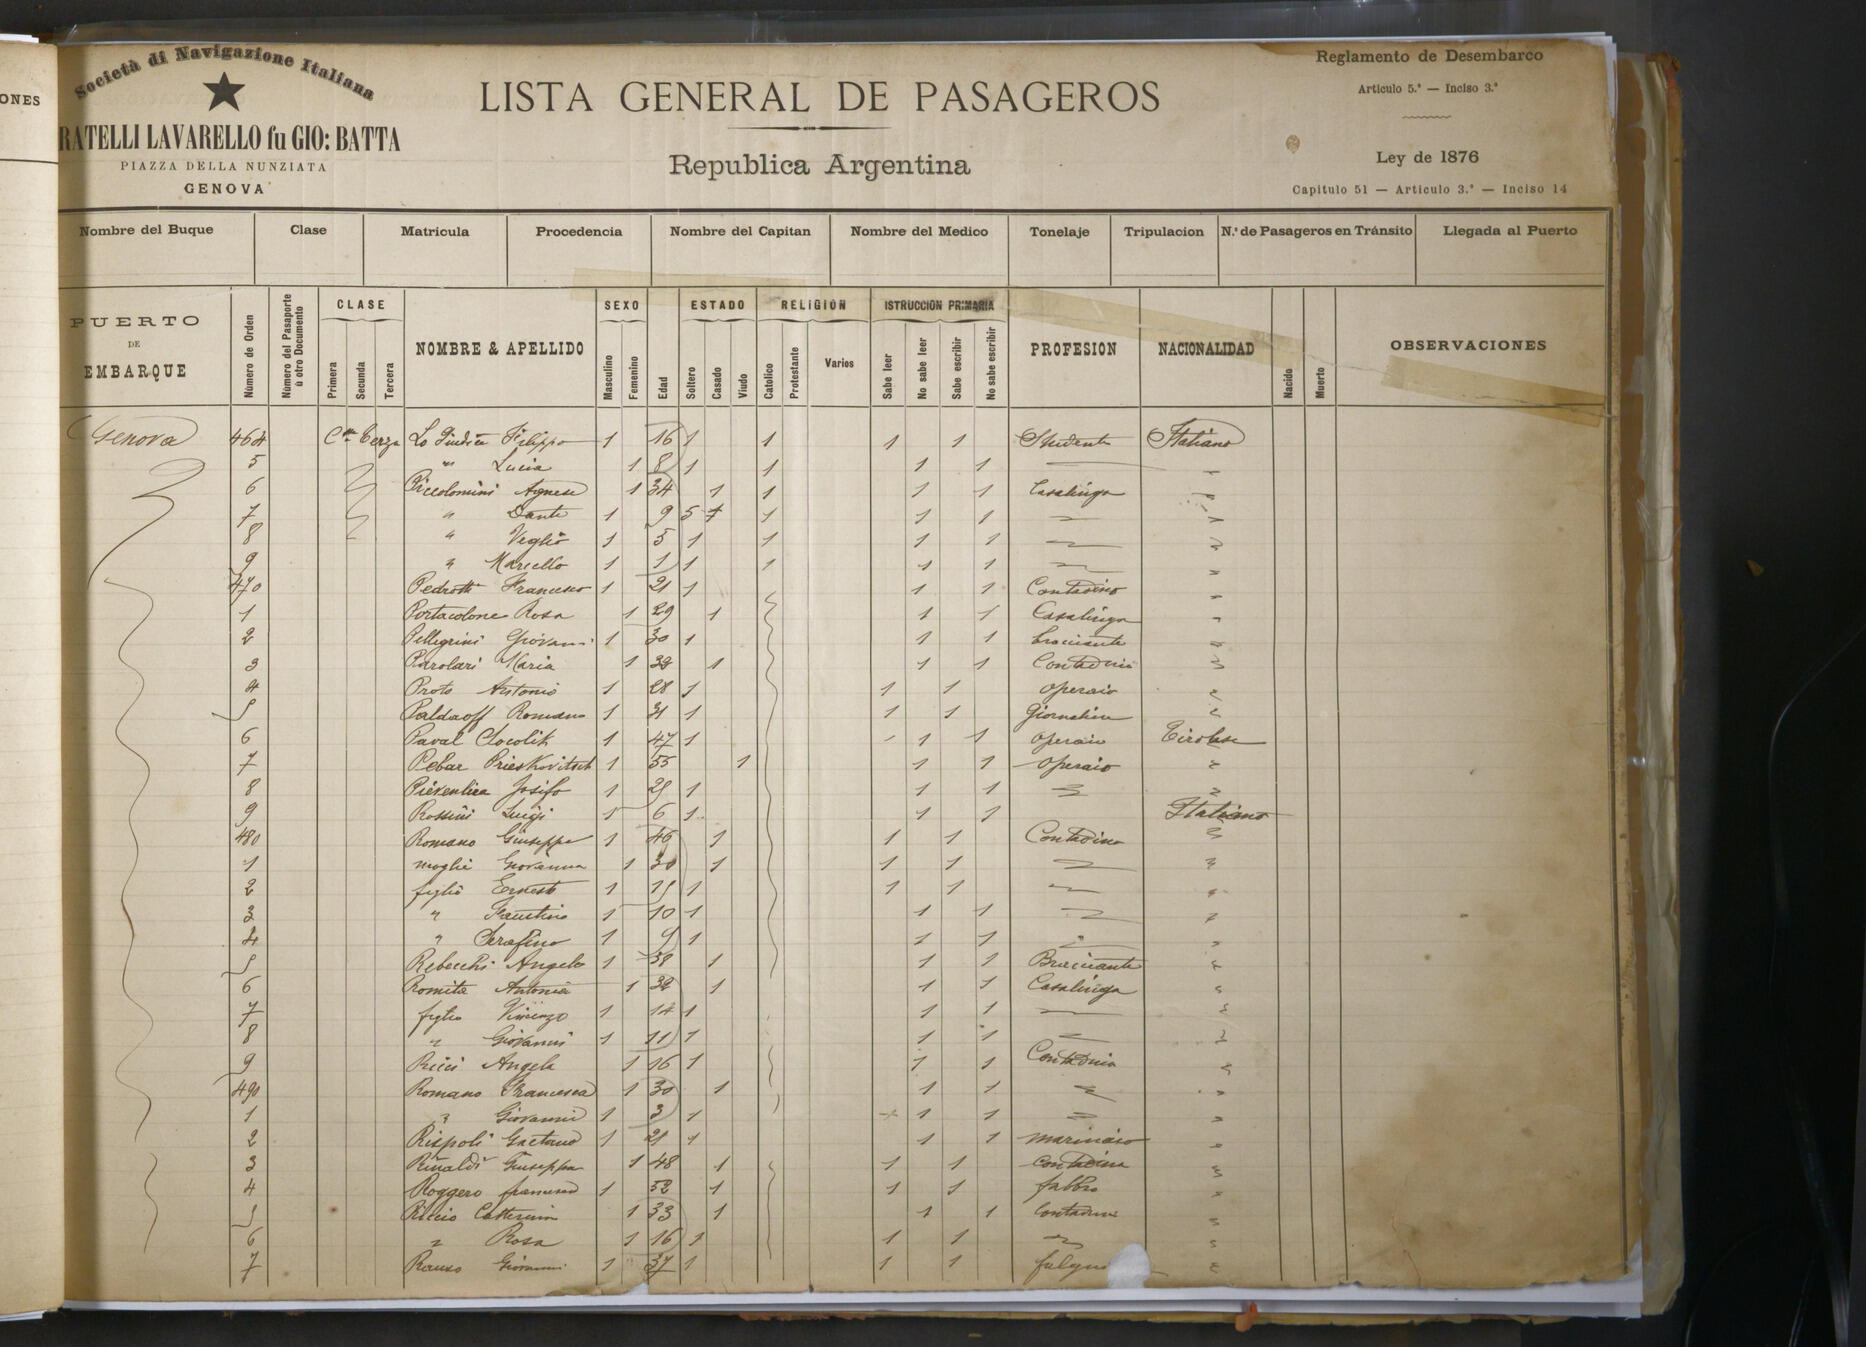 ONES
Società di Navigazione Italiana
RATELLI LAVARELLO fu GIO: BATTA
PIAZZA DELLA NUNZIATA
GENOVA
LISTA GENERAL DE PASAGEROS
Republica Argentina
Reglamento de Desembarco
Articulo 5.° — Inciso 3.°
Ley de 1876
Capitulo 51 — Articulo 3.° — Inciso 14
Nombre del Buque Clase Matricula Procedencia Nombre del Capitan Nombre del Medico Tonelaje Tripulacion N.° de Pasageros en Tránsito Llegada al Puerto
PUERTO DE EMBARQUE Número de Orden Número del Pasaporte ù otro Documento CLASE Primera Secunda Tercera NOMBRE & APELLIDO SEXO Masculino Femenino Edad ESTADO Soltero Casado Viudo RELIGIÓN Catolico Protestante Varios ISTRUCCION PRIMARIA Sabe leer No sabe leer Sabe escribir No sabe escribir PROFESION NACIONALIDAD Nacido Muerto OBSERVACIONES
Genova 464 Terza Lo Giudice Filippo 1 16 1 1 1 1 Studente Italiano
5 " Lucia 1 8 1 1 1 1
6 Piccolomini Agnese 1 34 1 1 1 1 Casalinga
7 " Dante 1 9 1 1 1
8 " Veglio 1 5 1 1 1 1
9 " Marcello 1 1 1 1 1 1
470 Pedrotti Francesco 1 21 1 1 1 Contadino
1 Portacolone Rosa 1 29 1 1 1 Casalinga
2 Pellegrini Giovanni 1 30 1 1 1 bracciante
3 Parolari Maria 1 32 1 1 1 Contadina
4 Proto Antonio 1 28 1 1 1 operaio
5 Paldaoff Romano 1 31 1 1 1 Giornaliere
6 Paval Clocolik 1 47 1 1 1 operaio Tirolese
7 Pebar Prieskovitsch 1 55 1 1 1 operaio
8 Pieventica Josifo 1 25 1 1 1
9 Rossini Luigi 1 6 1 1 1 Italiano
480 Romano Giuseppe 1 46 1 1 1 Contadino
1 moglie Giovanna 1 30 1 1 1
2 figlio Ernesto 1 15 1 1 1
3 " Faustino 1 10 1 1 1
4 " Serafino 1 9 1 1 1
5 Rebecchi Angelo 1 38 1 1 1 Bracciante
6 Romita Antonia 1 32 1 1 1 Casalinga
7 figlio Vincenzo 1 14 1 1 1
8 " Giovanni 1 11 1 1 1
9 Ricci Angela 1 16 1 1 1 Contadina
490 Romano Francesca 1 30 1 1 1
1 " Giovanni 1 3 1 1 1
2 Rispoli Gaetano 1 21 1 1 1 marinaio
3 Rinaldi Giuseppa 1 48 1 1 1 Contadina
4 Roggero francesco 1 52 1 1 1 fabbro
5 Riccio Catterina 1 33 1 1 1 Contadina
6 " Rosa 1 16 1 1 1
7 Giovanni 1 37 1 1 1